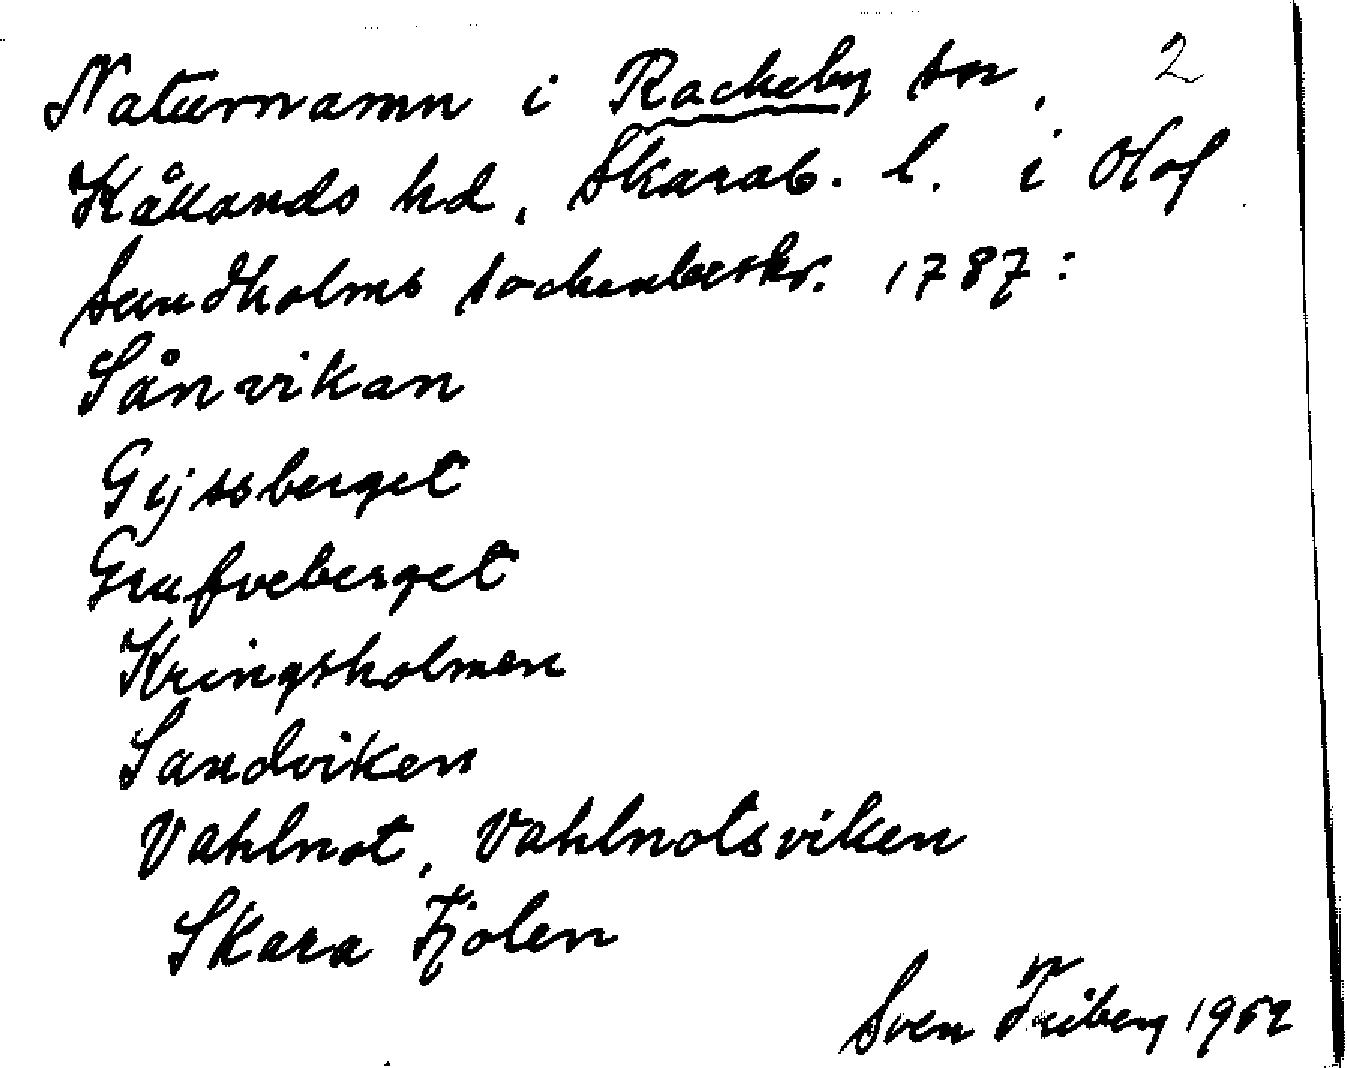 Naturnamn i Rackeby sn, 2
Kållands hd, Skarab. l. i Olof
Sundholms sockenbeskr. 1787:
Sånvikan
Gijssberget
Grafveberget
Kringsholmen
Sandviken
Vahlnot, Vahlnotsviken
Skara Fjolen
Sven Friberg 1952